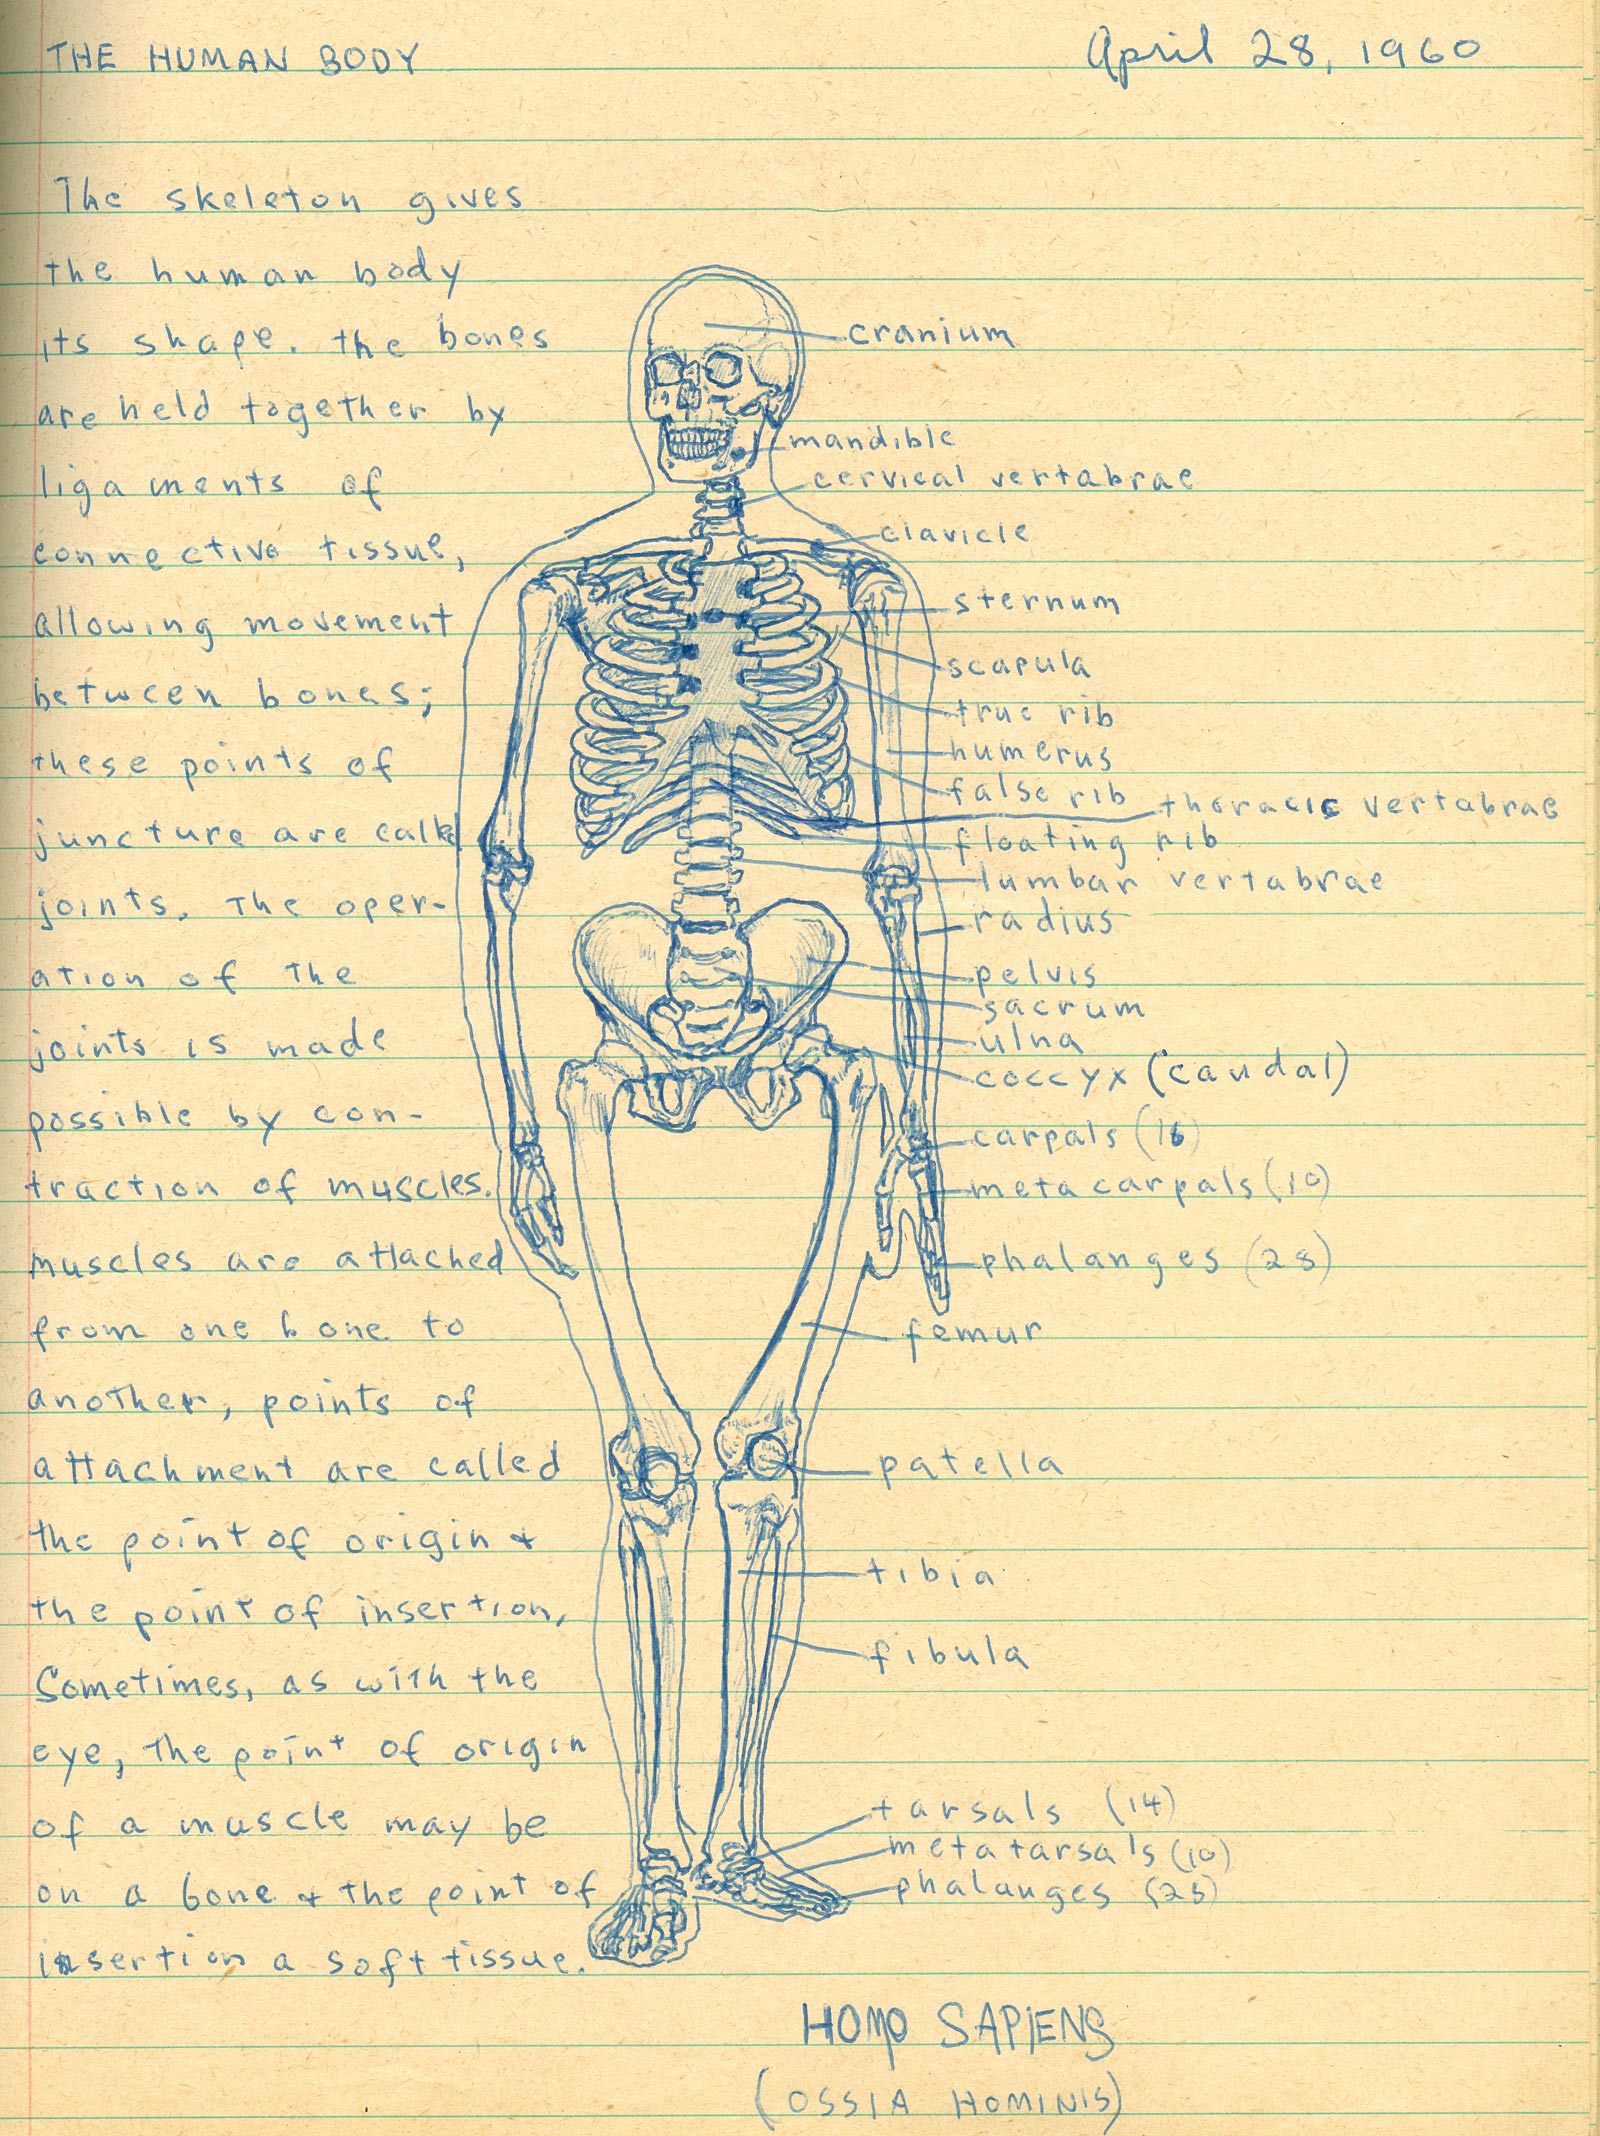 THE HUMAN BODY
April 28, 1960
The skeleton gives
the human body
its shape. the bones
are held together by
ligaments of
connective tissue,
allowing movement
between bones;
these points of
juncture are called
joints. The oper-
ation of the
joints is made
possible by con-
traction of muscles.
muscles are attached
from one bone to
another, points of
attachment are called
the point of origin &
the point of insertion,
Sometimes, as with the
eye, the point of origin
of a muscle may be
on a bone & the point of
insertion a soft tissue.
cranium
mandible
cervical vertabrae
clavicle
sternum
scapula
true rib
humerus
false rib
thoracic vertabrae
floating rib
lumbar vertabrae
radius
pelvis
sacrum
ulna
coccyx (caudal)
carpals (16)
metacarpals (10)
phalanges (28)
femur
patella
tibia
fibula
tarsals (14)
metatarsals (10)
phalanges (28)
HOMO SAPIENS
(OSSIA HOMINIS)